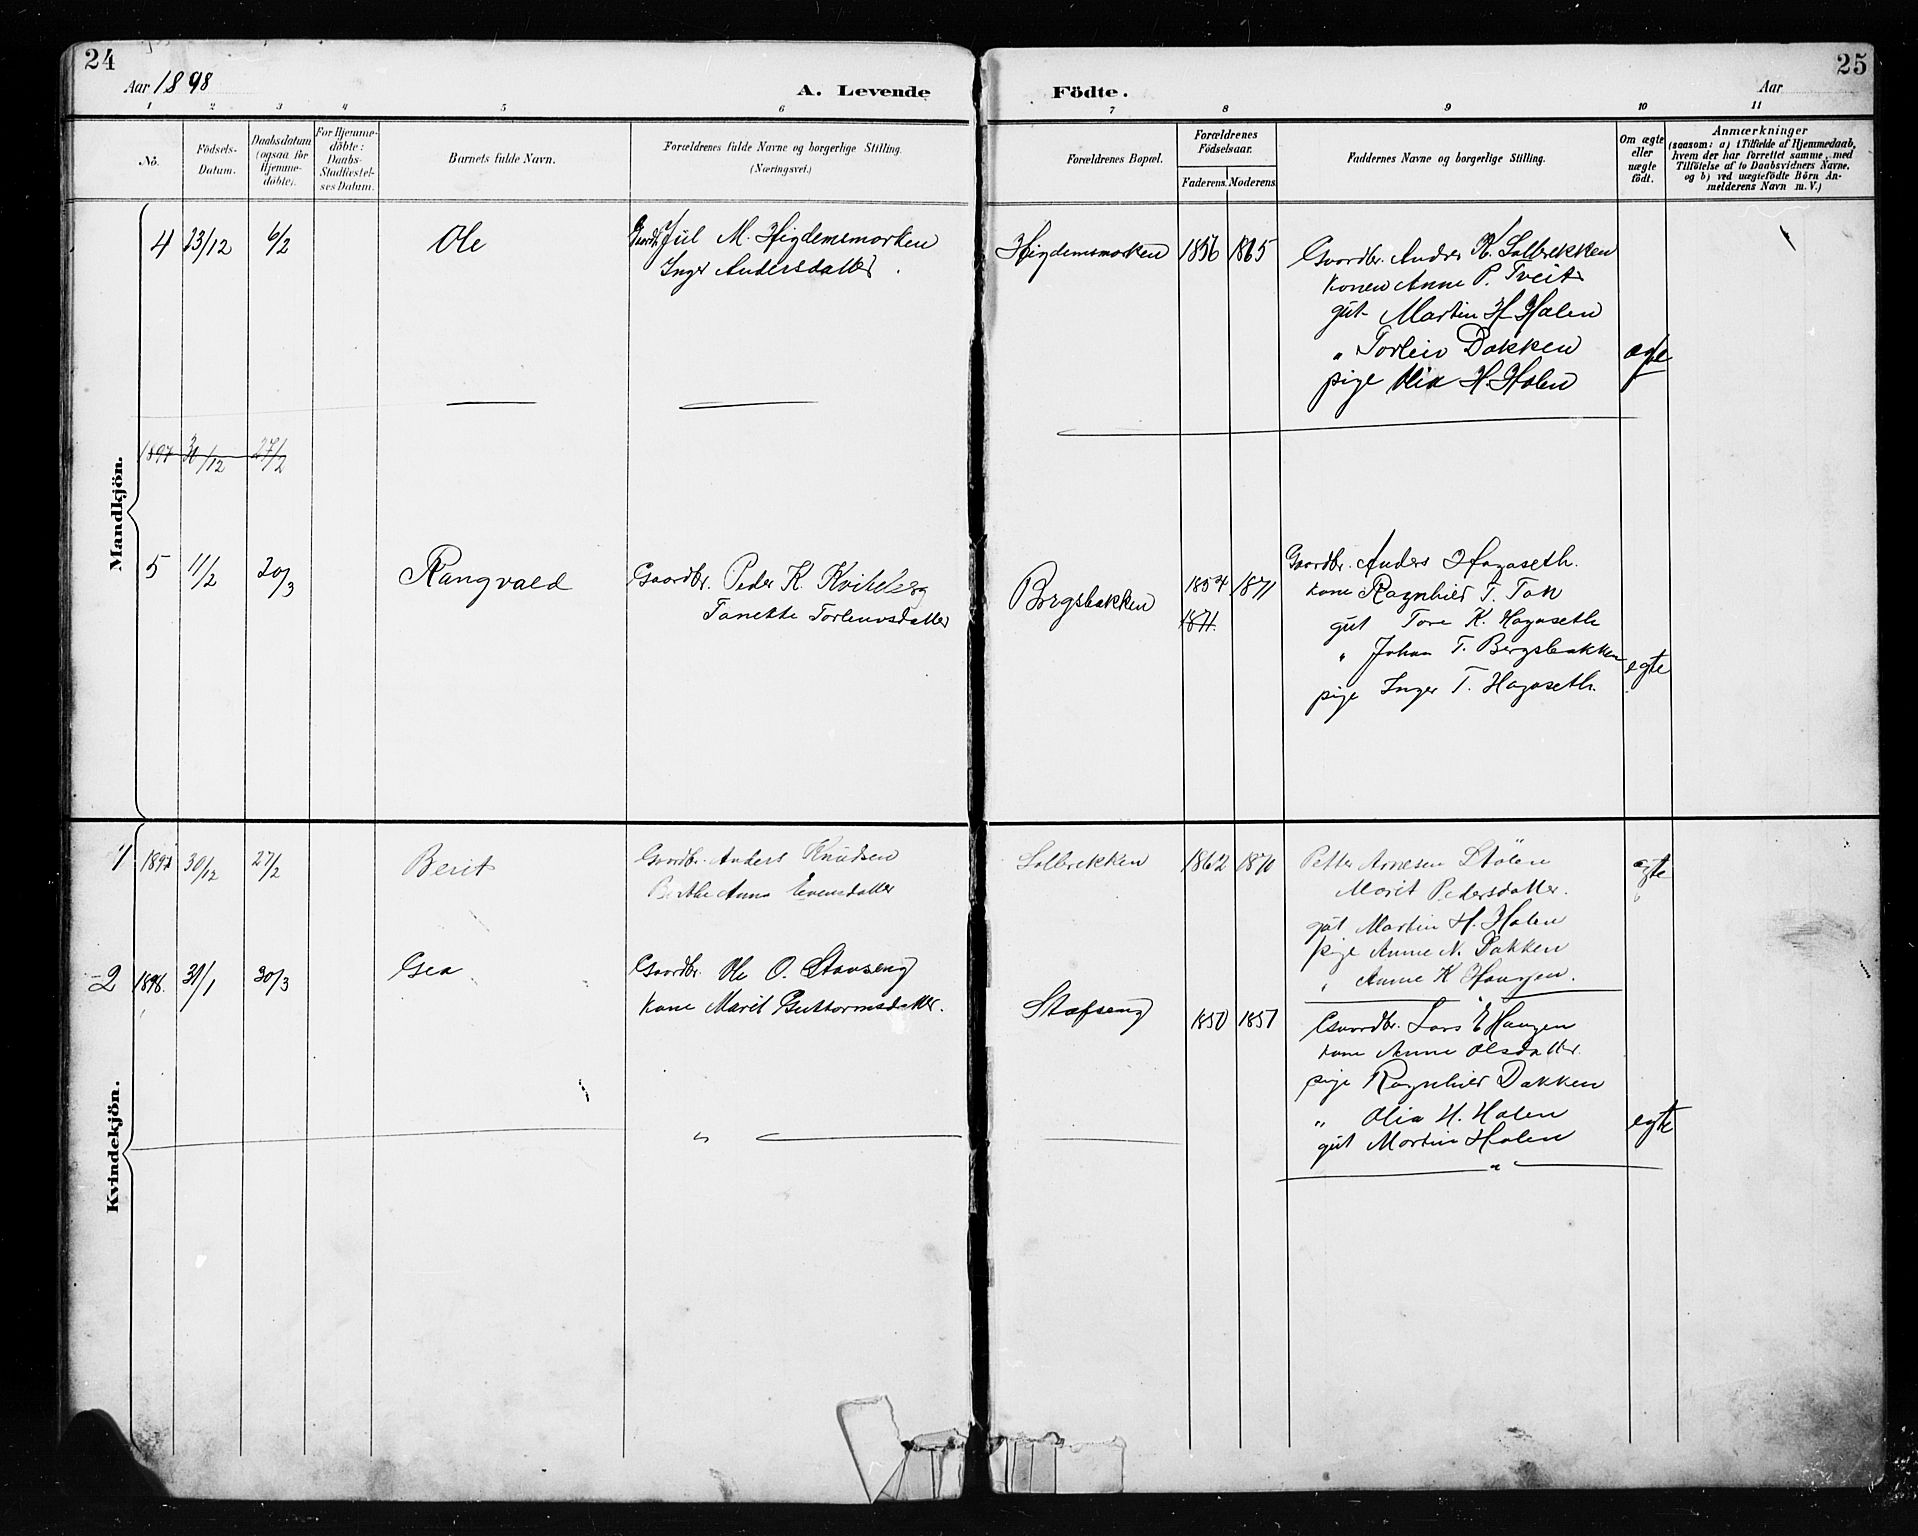 24
25
Aar 1898
A. Levende
Födte.
Aar
1 2 3 4 5 6 7 8 9 10 11
No.
Födsels-
Datum.
Daabsdatum
(ogsaa for
Hjemme-
döbte).
For Hjemme-
döbte:
Daabs-
Stadfæstel-
ses Datum.
Barnets fulde Navn.
Forældrenes fulde Navne og borgerlige Stilling.
(Næringsvei.)
Forældrenes Bopæl.
Forældrenes
Födselsaar.
Faderens. Moderens.
Faddernes Navne og borgerlige Stilling.
Om ægte
eller
uægte
født.
Anmærkninger
(saasom: a) i Tilfælde af Hjemmedaab,
hvem der har forrettet samme, med
Tilföielse af to Daabsvidners Navne.
og b) ved uægtefödte Börn An-
melderens Navn m. V.)
Mandkjön.
4 23/12 6/2 Ole Jul M. Higdemsmorken Higdemsmorken 1856 1865 Gaardbr. Anders K. Solbrekken
Inger Andersdatter. konen Anne P. Tveit
gut Martin H Holen
" Torleiv Dokken
pige Olia H. Holen
ægte
1897 30/12 27/2
5 11/2 20/3 Rangvald Gaardbr. Peder K. Kvikberg Borgsbakken 1854 1871 Gaardbr. Anders Hogaseth.
Tonette Torleivsdatter 1871. kone Ragnhild T. Tok
gut Tore K. Hogaseth
" Johan T. Bergsbakken
pige Inger T. Hogaseth.
egte
Kvindekjön.
1 1897 30/12 27/2 Berit Gaardbr. Anders Knudsen Solbrekken 1862 1870 Petter Arnesen Stölen ægte
Berthe Anna Evensdatter Marit Pedersdatter.
gut Martin H. Holen
pige Anne N. Dokken
" Anne K Haugen.
2 1898. 31/1 20/3 Gea Gaardbr. Ole O. Stavseng Stafseng 1850 1857 Gaardbr. Lars E Haugen
kone Marit Guttormsdatter. kone Anne Olsdatter.
pige Ragnhild Dokken
" Olia H. Holen
gut Martin Holen
egte